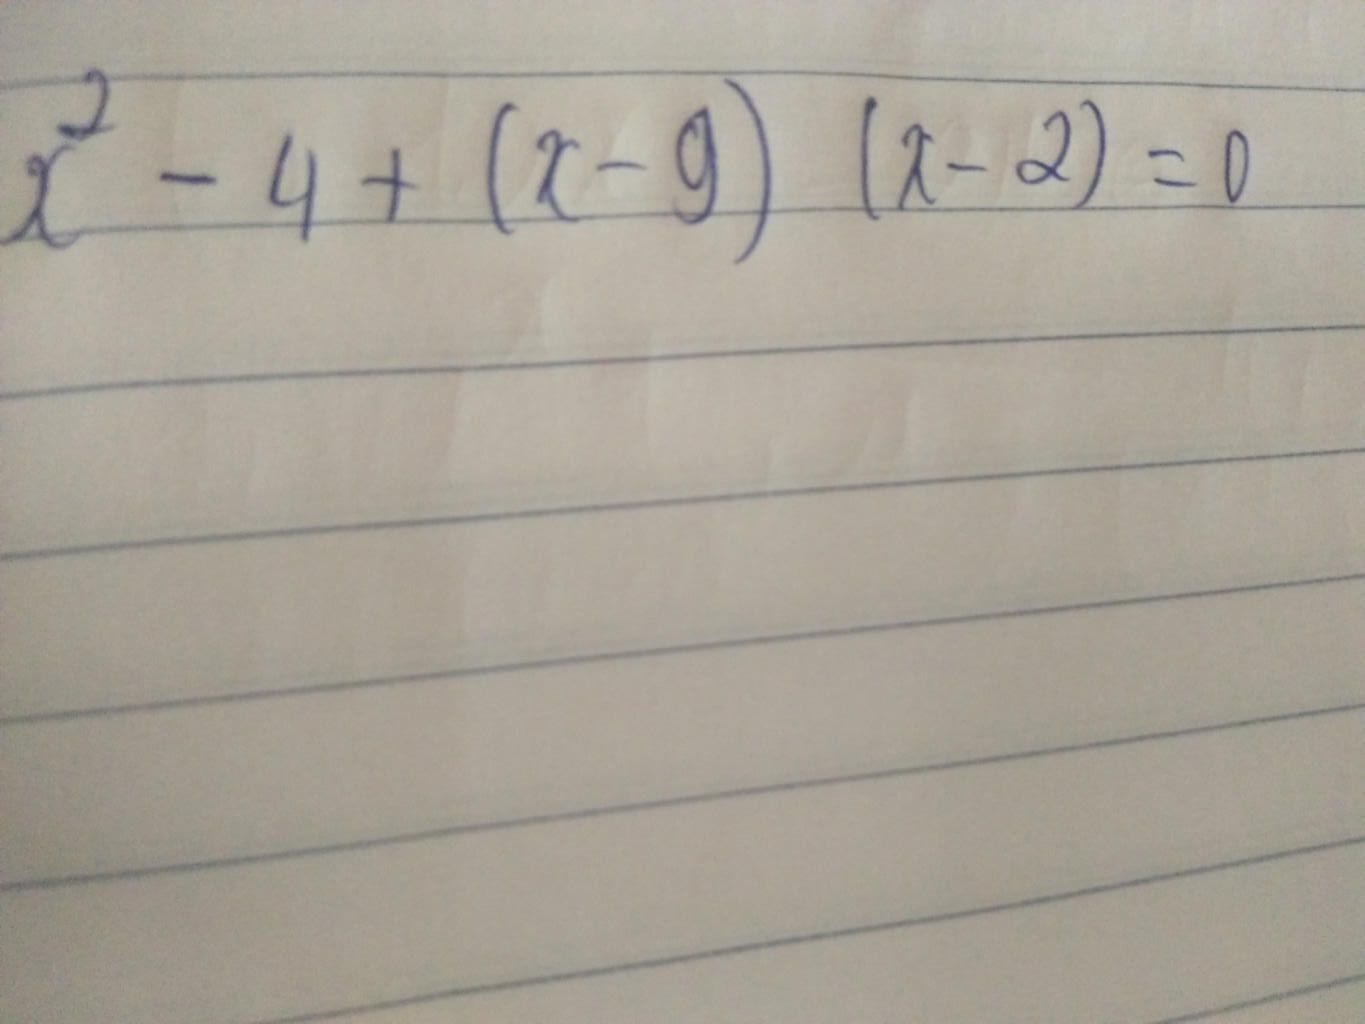 x² - 4 + (x - 9) (x - 2) = 0